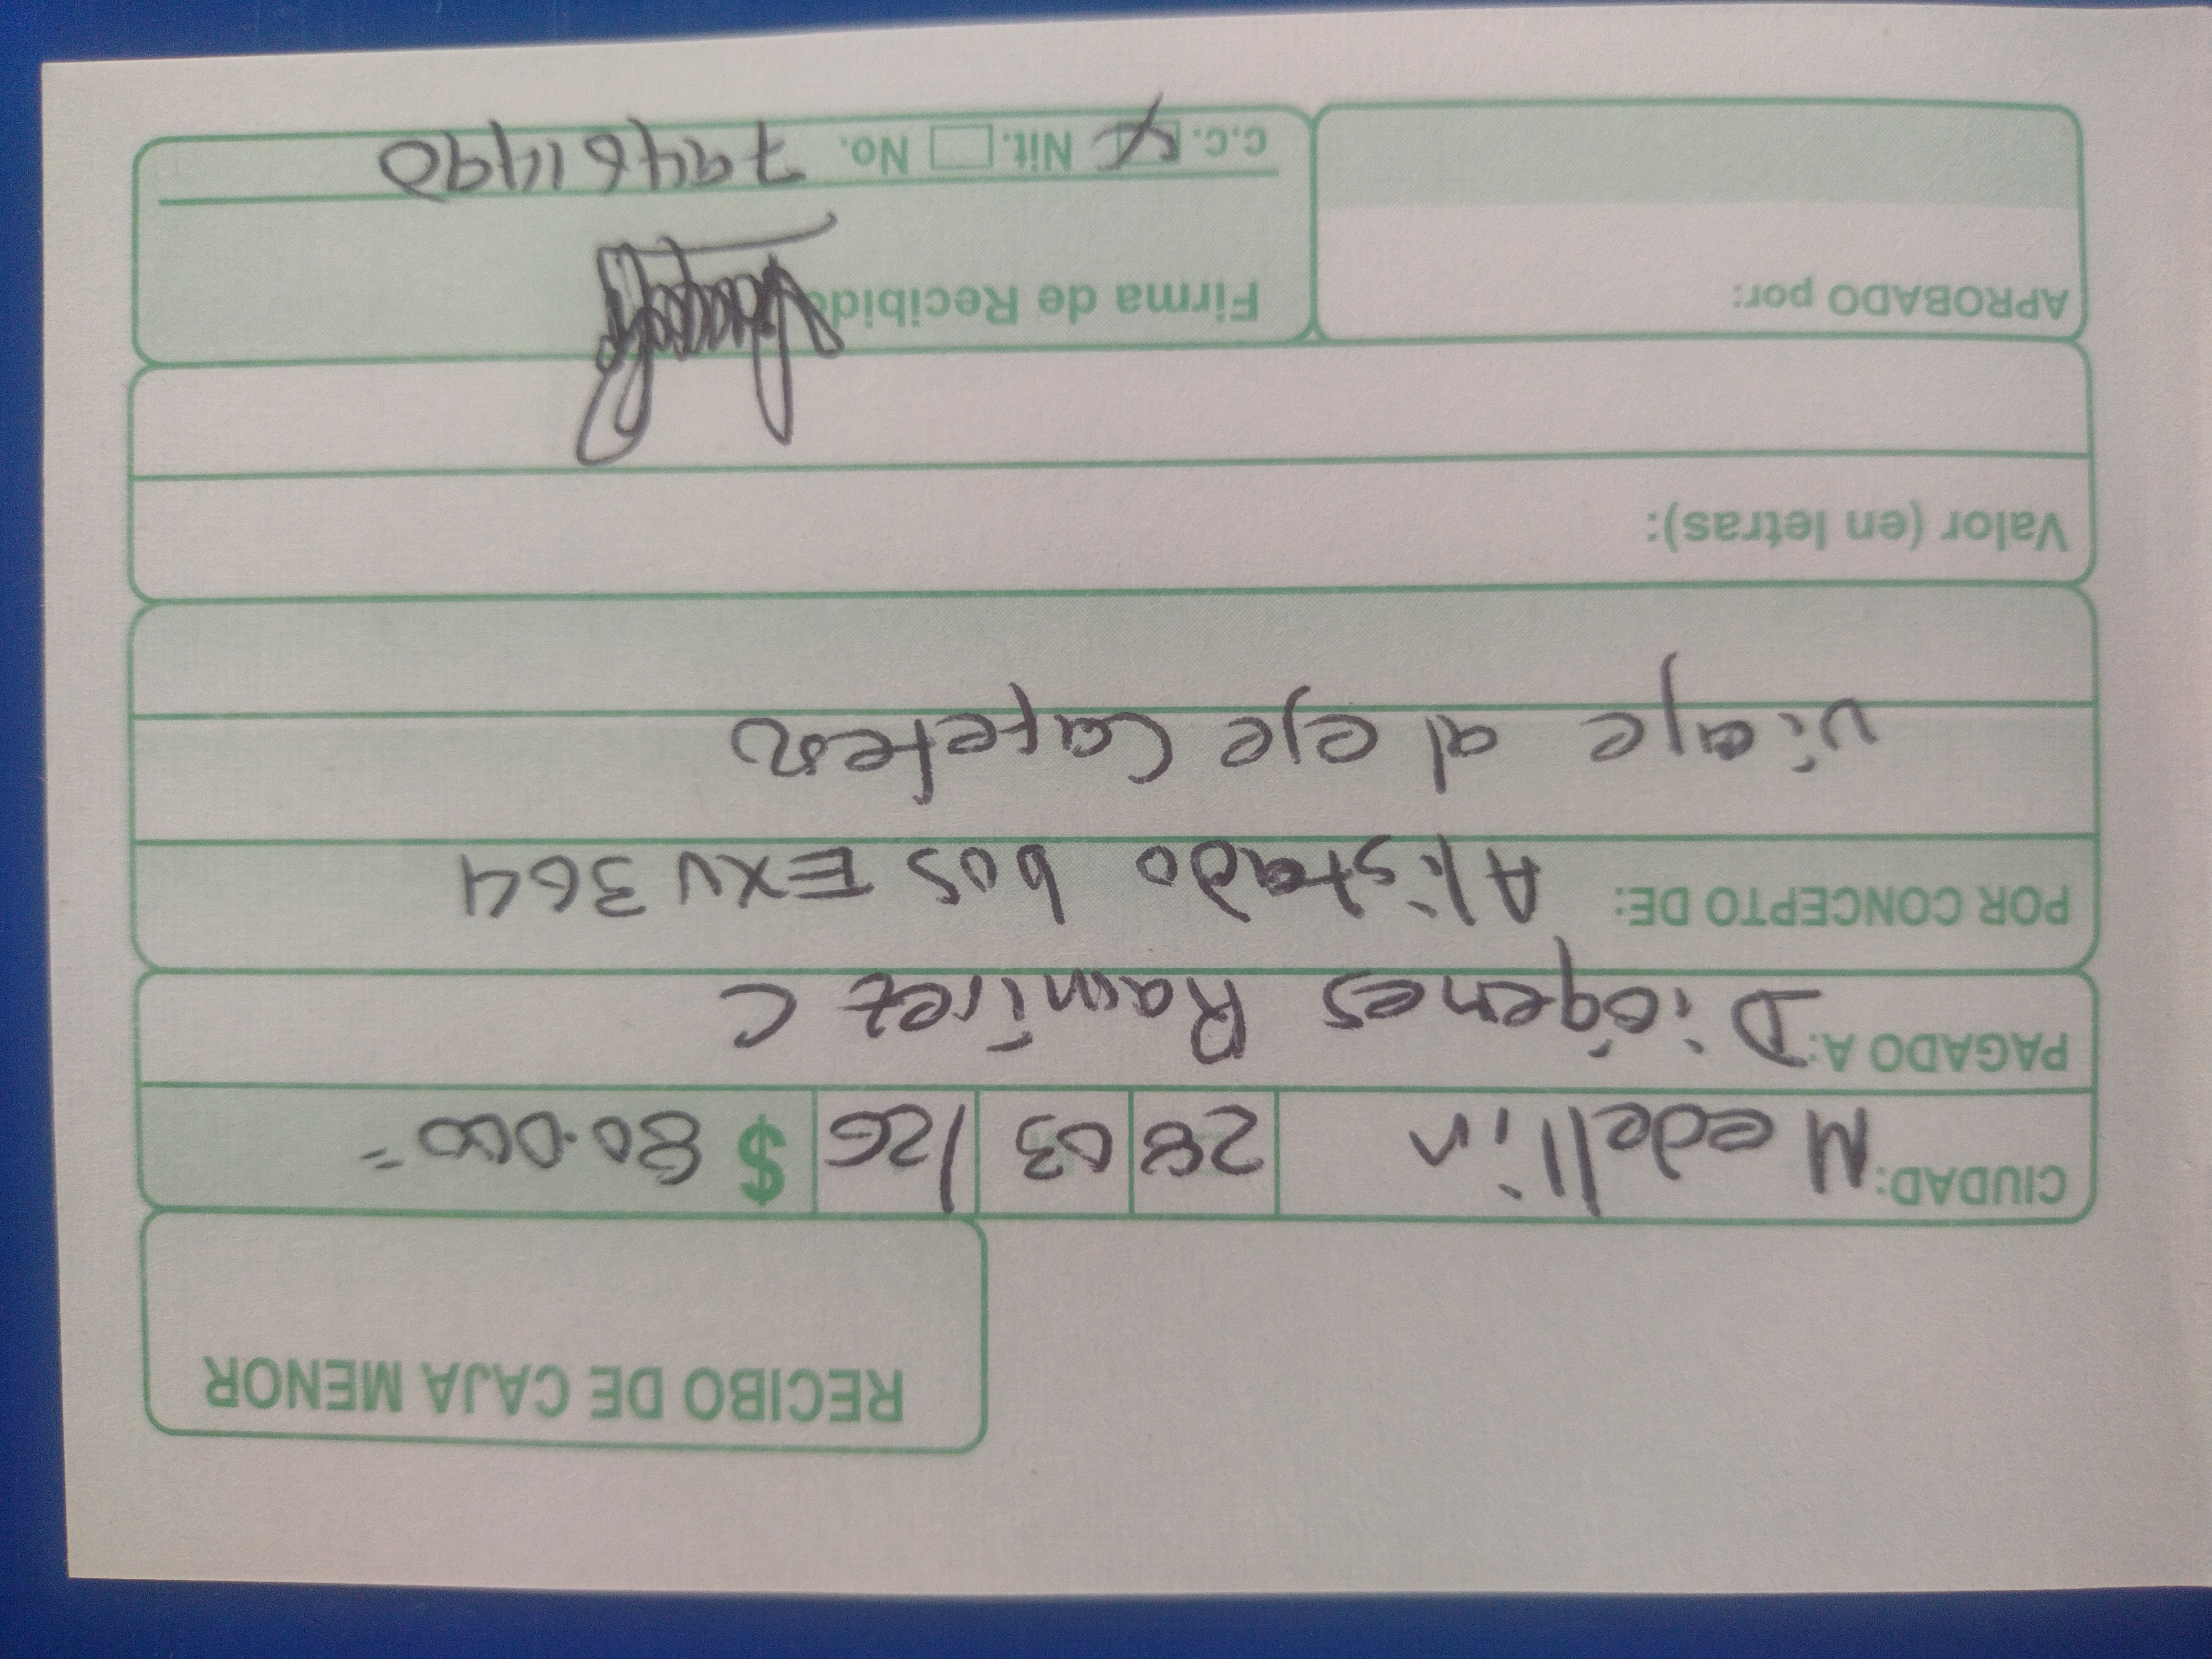 RECIBO DE CAJA MENOR
CIUDAD: Medellin 28 03 /26 $ 80.000=
PAGADO A: Diógenes Ramírez C
POR CONCEPTO DE: Alistado bus EXU364
viaje al eje Cafetero
Valor (en letras):
APROBADO por:
Firma de Recibido
C.C. X Nit. No. 79461490